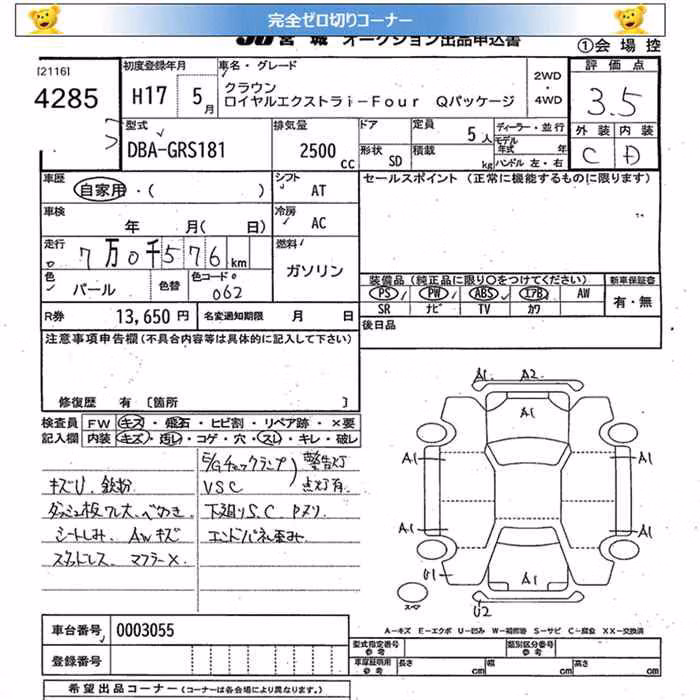 完全ゼロ切りコーナー
JU 宮城 オークション出品申込書
①会場控
[2116]
4285
初度登録年月
H17 5月
車名・グレード
クラウン
ロイヤルエクストラi-Four Qパッケージ
2WD
・
4WD
評価点
3.5
外装 内装
C D
型式
DBA-GRS181
排気量
2500cc
ドア
形状 SD
定員 5人
積載 kg
ディーラー・並行
モデル年式 年
ハンドル 左・右
車歴
自家用・( )
シフト
AT
セールスポイント (正常に機能するものに限ります)
車検
年 月( 日)
冷房
AC
走行
7万0千576km
燃料
ガソリン
色
パール
色替
色コード
062
装備品(純正品に限り○をつけてください)
新車保証書
PS PW ABS エアB AW
有・無
SR ナビ TV カワ
R券 13,650円
名変通知期限 月 日
後日品
注意事項申告欄(不具合内容等は具体的に記入して下さい)
修復歴 有 〔箇所 〕
検査員
記入欄
FW キズ・飛石・ヒビ割・リペア跡・×要
内装 キズ・汚レ・コゲ・穴・スレ・キレ・破レ
E/Gチェックランプ 警告灯
キズU、鉄粉 VSC 点灯有
ダッシュ板ワレ大、べたつき 下廻りS、C Pヌリ
シートしみ、AWキズ エンドパネル歪み
スタッドレス マフラーX
A1 A2
A1
A1 A1
A1 A1
U1 A1
スペア U2
A-キズ E-エクボ U-凹み W-補修跡 S-サビ C-腐食 XX-交換済
車台番号 0003055
登録番号
型式指定番号 参考
類別区分番号 参考
車庫証明用 参考 長さ cm 幅 cm 高さ cm
希望出品コーナー (コーナーは各会場により異なります。)